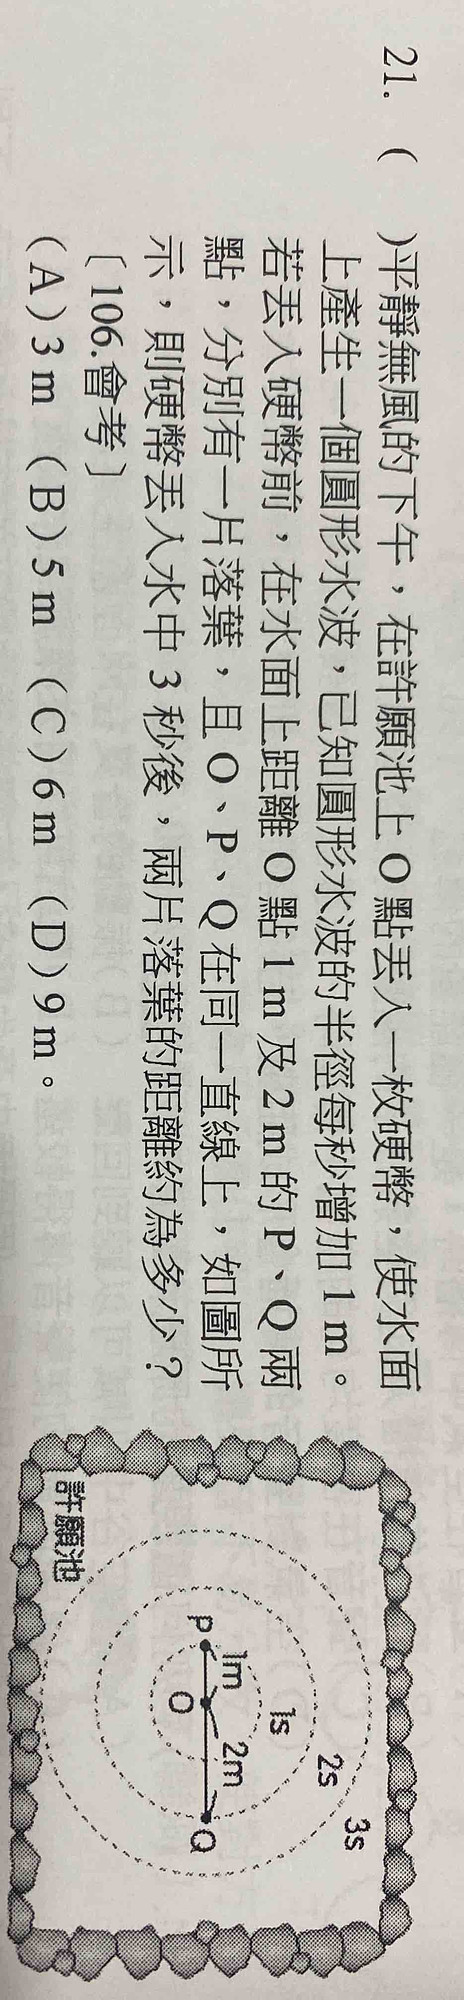 21. (　　)平靜無風的下午，在許願池上 O 點丟入一枚硬幣，使水面
上產生一個圓形水波，已知圓形水波的半徑每秒增加 1 m。
若丟入硬幣前，在水面上距離 O 點 1 m 及 2 m 的 P、Q 兩
點，分別有一片落葉，且 O、P、Q 在同一直線上，如圖所
示，則硬幣丟入水中 3 秒後，兩片落葉的距離約為多少？
〔106.會考〕
(A)3 m (B)5 m (C)6 m (D)9 m。
3s
2s
1s
1m
2m
P
O
Q
許願池